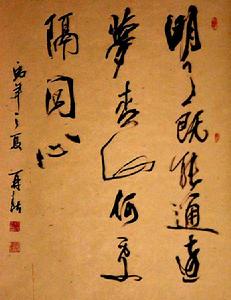 明月既能通憶
夢青山何
隔同心
年之夏